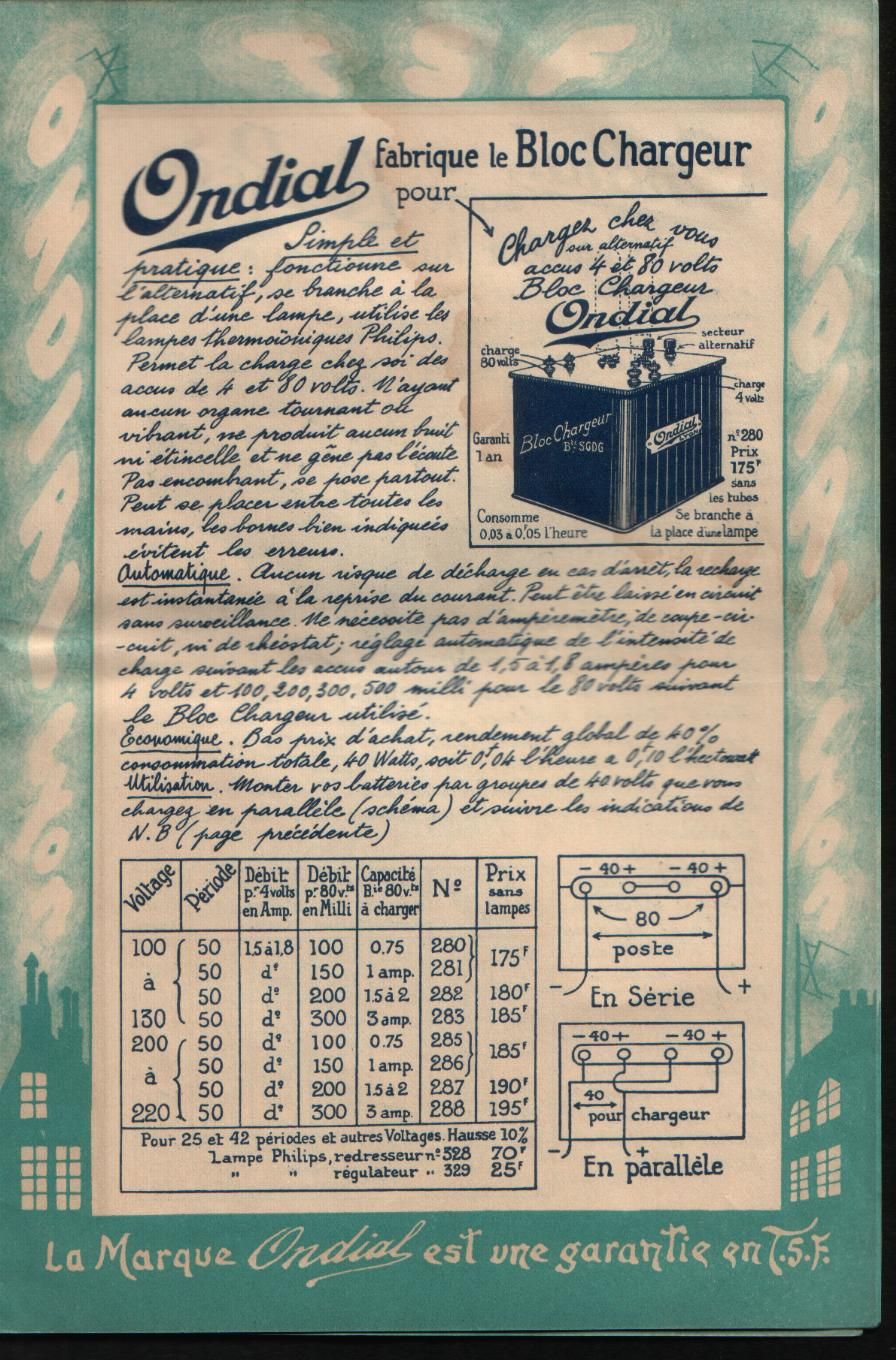 T S F
Ondial fabrique le Bloc Chargeur
pour
Simple et
pratique : fonctionne sur
l'alternatif, se branche à la
place d'une lampe, utilise les
lampes thermoïoniques Philips.
Permet la charge chez soi des
accus de 4 et 80 volts. N'ayant
aucun organe tournant ou
vibrant, ne produit aucun bruit
ni étincelle et ne gêne pas l'écoute
Pas encombrant, se pose partout.
Peut se placer entre toutes les
mains, les bornes bien indiquées
évitent les erreurs.
Chargez chez vous
sur alternatif
accus 4 et 80 volts
Bloc Chargeur
Ondial
secteur
alternatif
charge
80 volts
charge
4 volts
Bloc Chargeur
Bté SGDG
Ondial
Lyon
Garanti
1 an
n°280
Prix
175F
sans
les tubes
Consomme
0,03 à 0,F05 l'heure
Se branche à
la place d'une lampe
Automatique. Aucun risque de décharge en cas d'arrêt, la recharge
est instantanée à la reprise du courant. Peut être laissé en circuit
sans surveillance. Ne nécessite pas d'ampèremètre, de coupe-cir-
-cuit, ni de rhéostat ; réglage automatique de l'intensité de
charge suivant les accus autour de 1,5 à 1,8 ampères pour
4 volts et 100, 200, 300, 500 milli pour le 80 volts suivant
le Bloc Chargeur utilisé.
Economique. Bas prix d'achat, rendement global de 40%
consommation totale, 40 Watts, soit 0F,04 l'heure a 0F,10 l'hectowatt
Utilisation. Monter vos batteries par groupes de 40 volts que vous
chargez en parallèle (schéma) et suivre les indications de
N.B (page précédente)
Voltage Période Débit pr 4 volts en Amp. Débit pr 80 v.ts en Milli Capacité Bie 80 v.ts à charger N° Prix sans lampes
100 50 1.5 à 1,8 100 0.75 280 175F
à 50 d° 150 1 amp. 281
50 d° 200 1.5 à 2 282 180F
130 50 d° 300 3 amp. 283 185F
200 50 d° 100 0.75 285 185F
à 50 d° 150 1 amp. 286
50 d° 200 1.5 à 2 287 190F
220 50 d° 300 3 amp. 288 195F
Pour 25 et 42 périodes et autres Voltages. Hausse 10%
Lampe Philips, redresseur n° 328 70F
" " régulateur " 329 25F
- 40 + - 40 +
80
poste
- +
En Série
- 40 + - 40 +
40
pour chargeur
- +
En parallèle
La Marque Ondial est une garantie en T.S.F.